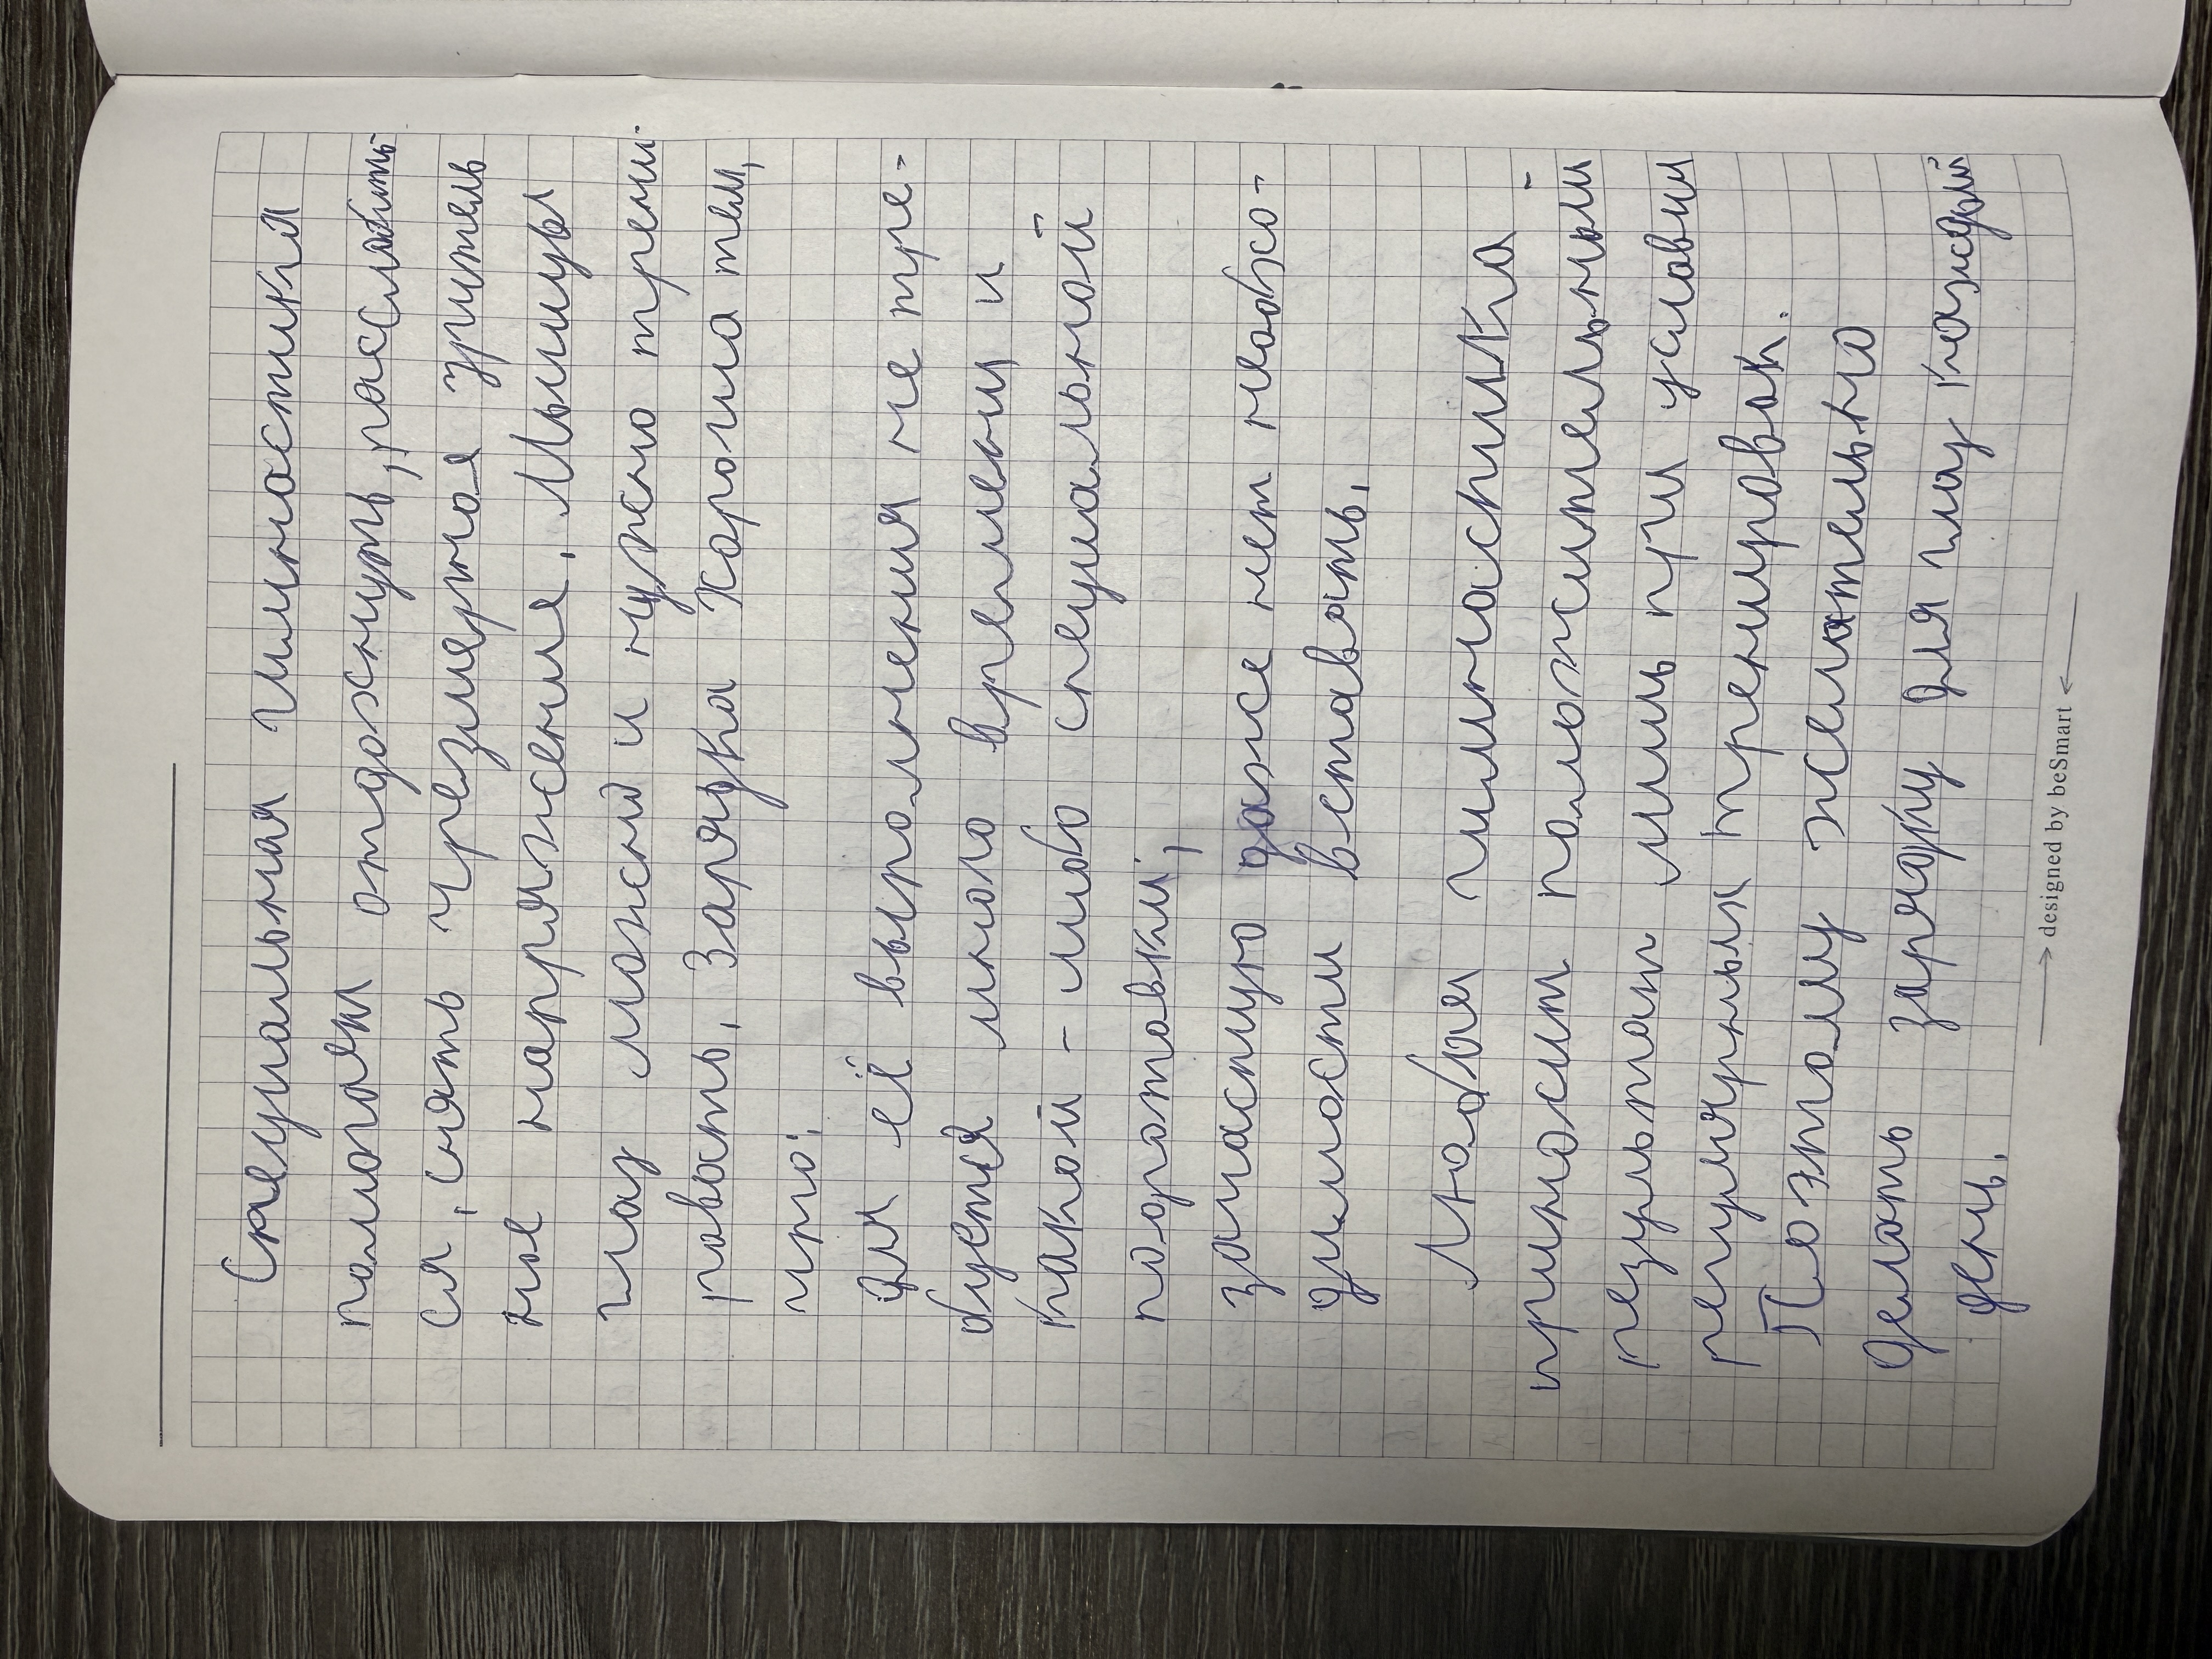 Специальная гимнастика
помогает отдохнуть, расслабить
ся, снять чрезмерное зритель
ное напряжение. Мышцы
глаз можно и нужно трени
ровать. Зарядка хороша тем,
что:
Для её выполнения не тре-
буется много времени и
какой-либо специальной
подготовки,
зачастую даже нет необхо-
димости вставать.
Любая гимнастика
приносит положительный
результат лишь при условии
регулярных тренировок.
Поэтому желательно
делать зарядку для глаз каждый
день.
designed by beSmart